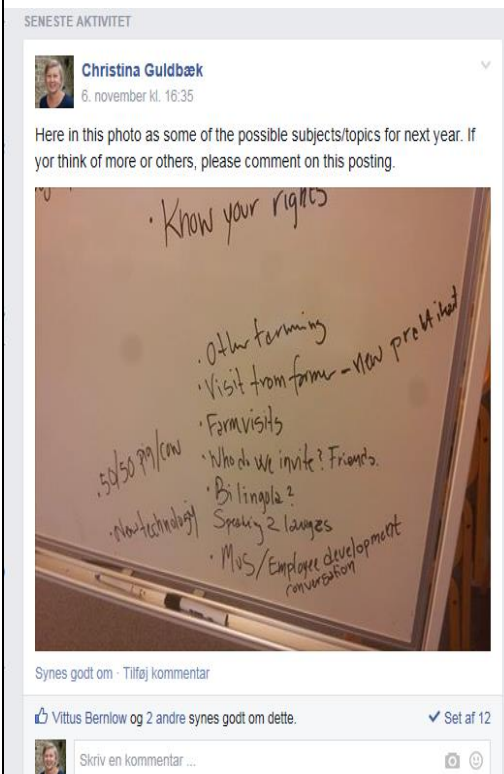 SENESTE AKTIVITET
Christina Guldbæk
6. november kl. 16:35
Here in this photo as some of the possible subjects/topics for next year. If
yor think of more or others, please comment on this posting.
· Know your rights
· Other farming
· Visit from farmer - new praktikant
· Farmvisits
· 50/50 pig/cow
· Who do we invite? Friends.
· Bilingola?
· New technology
Speaking 2 langages
· MUS/Employee development
conversation
Synes godt om · Tilføj kommentar
Vittus Bernlow og 2 andre synes godt om dette.
Set af 12
Skriv en kommentar ...